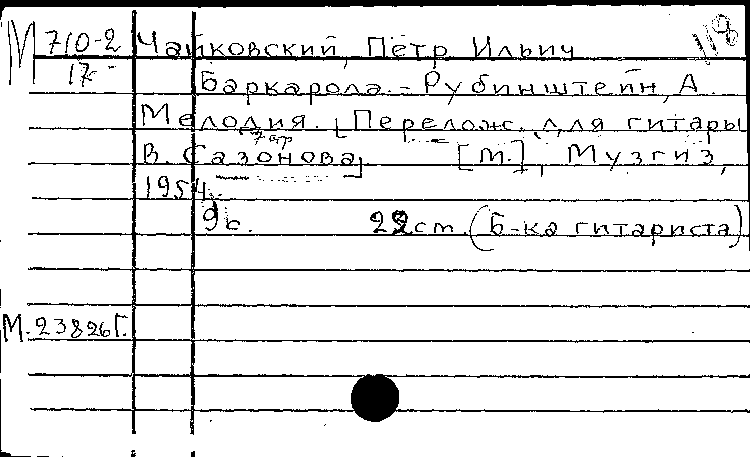 М 710-2 Чайковский, Пётр Ильич 118
17
Баркарола. - Рубинштейн, А.
Мелодия. [Перелож. для гитары
В. Сазонова]. [М.], Музгиз,
1954.
9с. 22см. (Б-ка гитариста)
М.23826Г.